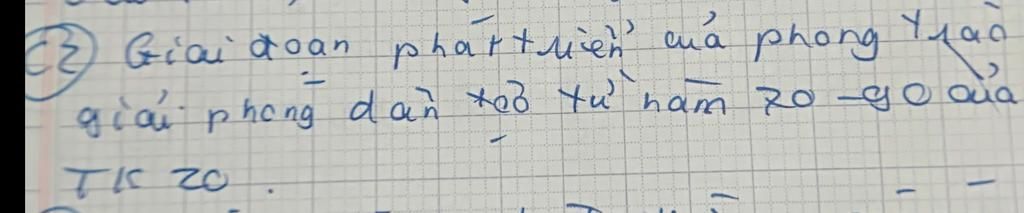 C3) Giai đoạn phát triển của phong trào
giải phóng dân tộc từ năm 70 - 90 của
TK 20.